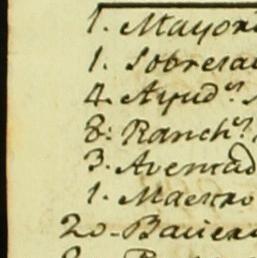 1. Mayor
1. Sobresa
4. Ayud.s
8. Ranch.s
3. Aventad
1. Maestro
20. Baciero